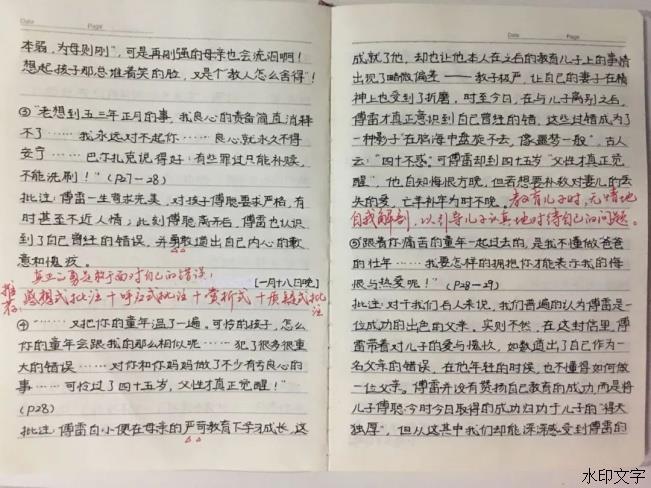 Date Page
本弱，为母则刚"，可是再刚强的母亲也会流泪啊！
想起孩子那总堆着笑的脸，又是个"教人怎么舍得"！
③"老想到五三年正月的事，我良心的责备简直消释
不了……我永远对不起你……良心就永久不得
安宁……巴尔扎克说得好：有些罪过只能补赎，
不能洗刷！"（P27-28）
批注：傅雷一生苛求完美，对孩子傅聪要求严格，有
时甚至不近人情；此刻傅聪离开后，傅雷也认识
到了自己曾经的错误，并勇敢道出自己内心的歉
意和愧疚。
真正的勇是敢于面对自己的错误！
[一月十八日晚]
推荐：感想式批注＋呼应式批注＋赏析式＋质疑式批注
④"……对把你的童年温了一遍。可怜的孩子，怎么
你的童年会跟我的那么相似呢……犯了很多很重
大的错误……对你和你妈妈做了不少有亏良心的
事……可怜过了四十五岁，父性才真正觉醒！"
（P28）
批注：傅雷自小便在母亲的严苛教育下学习成长，这
Date Page
成就了他，却也让他本人在之后的教育儿子上的事情
出现了略微偏差——教子极严，让自己的妻子在精
神上也受到了折磨，时至今日，在与儿子离别之后，
傅雷才真正意识到自己曾经的错，这些过错成为了
一种影子"在脑海中盘旋不去，像噩梦一般"，古人
云："四十不惑"，可傅雷却到四十五岁"父性才真正觉
醒"，他自知悔恨方晚，但若想要补救对妻儿的丢
失的爱，亡羊补牢为时不晚。教育儿子时，无情地
自我解剖，以引导儿子认真地对待自己的问题。
⑤"跟着你痛苦的童年一起过去的，是我不懂做爸爸
的壮年……我要怎样的拥抱你才能表示我的悔
恨与热爱呢！"（P28-29）
批注：对于我们后人来说，我们普遍的认为傅雷是一
位成功的出色的父亲。实则不然，在这封信里，傅
雷带着对儿子的爱与愧疚，如数道出了自己作为一
名父亲的错误，在他年轻的时候，也不懂得如何做
一位父亲。傅雷并没有赞扬自己教育的成功，而是将
儿子傅聪今时今日取得的成功归功于儿子的"得天
独厚"，但从这其中我们却能深深感受到傅雷的
水印文字